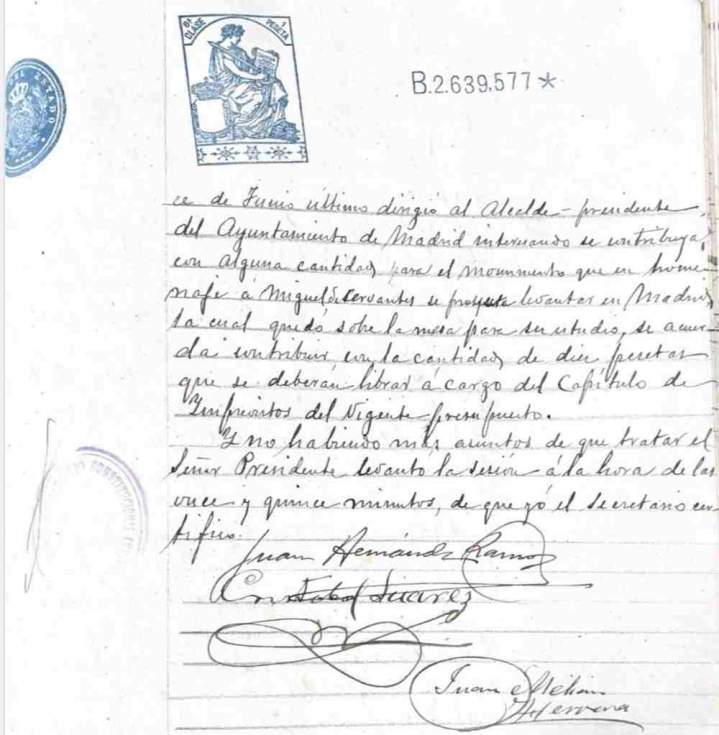 8ª CLASE PESETA
B.2.639.577*
ESTADO
ce de Junio último dirigió al Alcalde-presidente
del Ayuntamiento de Madrid interesando se contribuya
con alguna cantidad para el monumento que en home-
naje á Miguel de Cervantes se proyecta levantar en Madrid,
la cual quedó sobre la mesa para su estudio, se acuer-
da contribuir con la cantidad de diez pesetas
que se deberán librar á cargo del Capítulo de
Imprevistos del Vigente presupuesto.
Y no habiendo más asuntos de que tratar el
Señor Presidente levanto la sesión á la hora de las
once y quince minutos, de que yó el Secretario cer-
tifico.
Juan Hernández Ramos
Cristobal Suarez
CONSTITUCIONAL
Juan Melián
Herrera